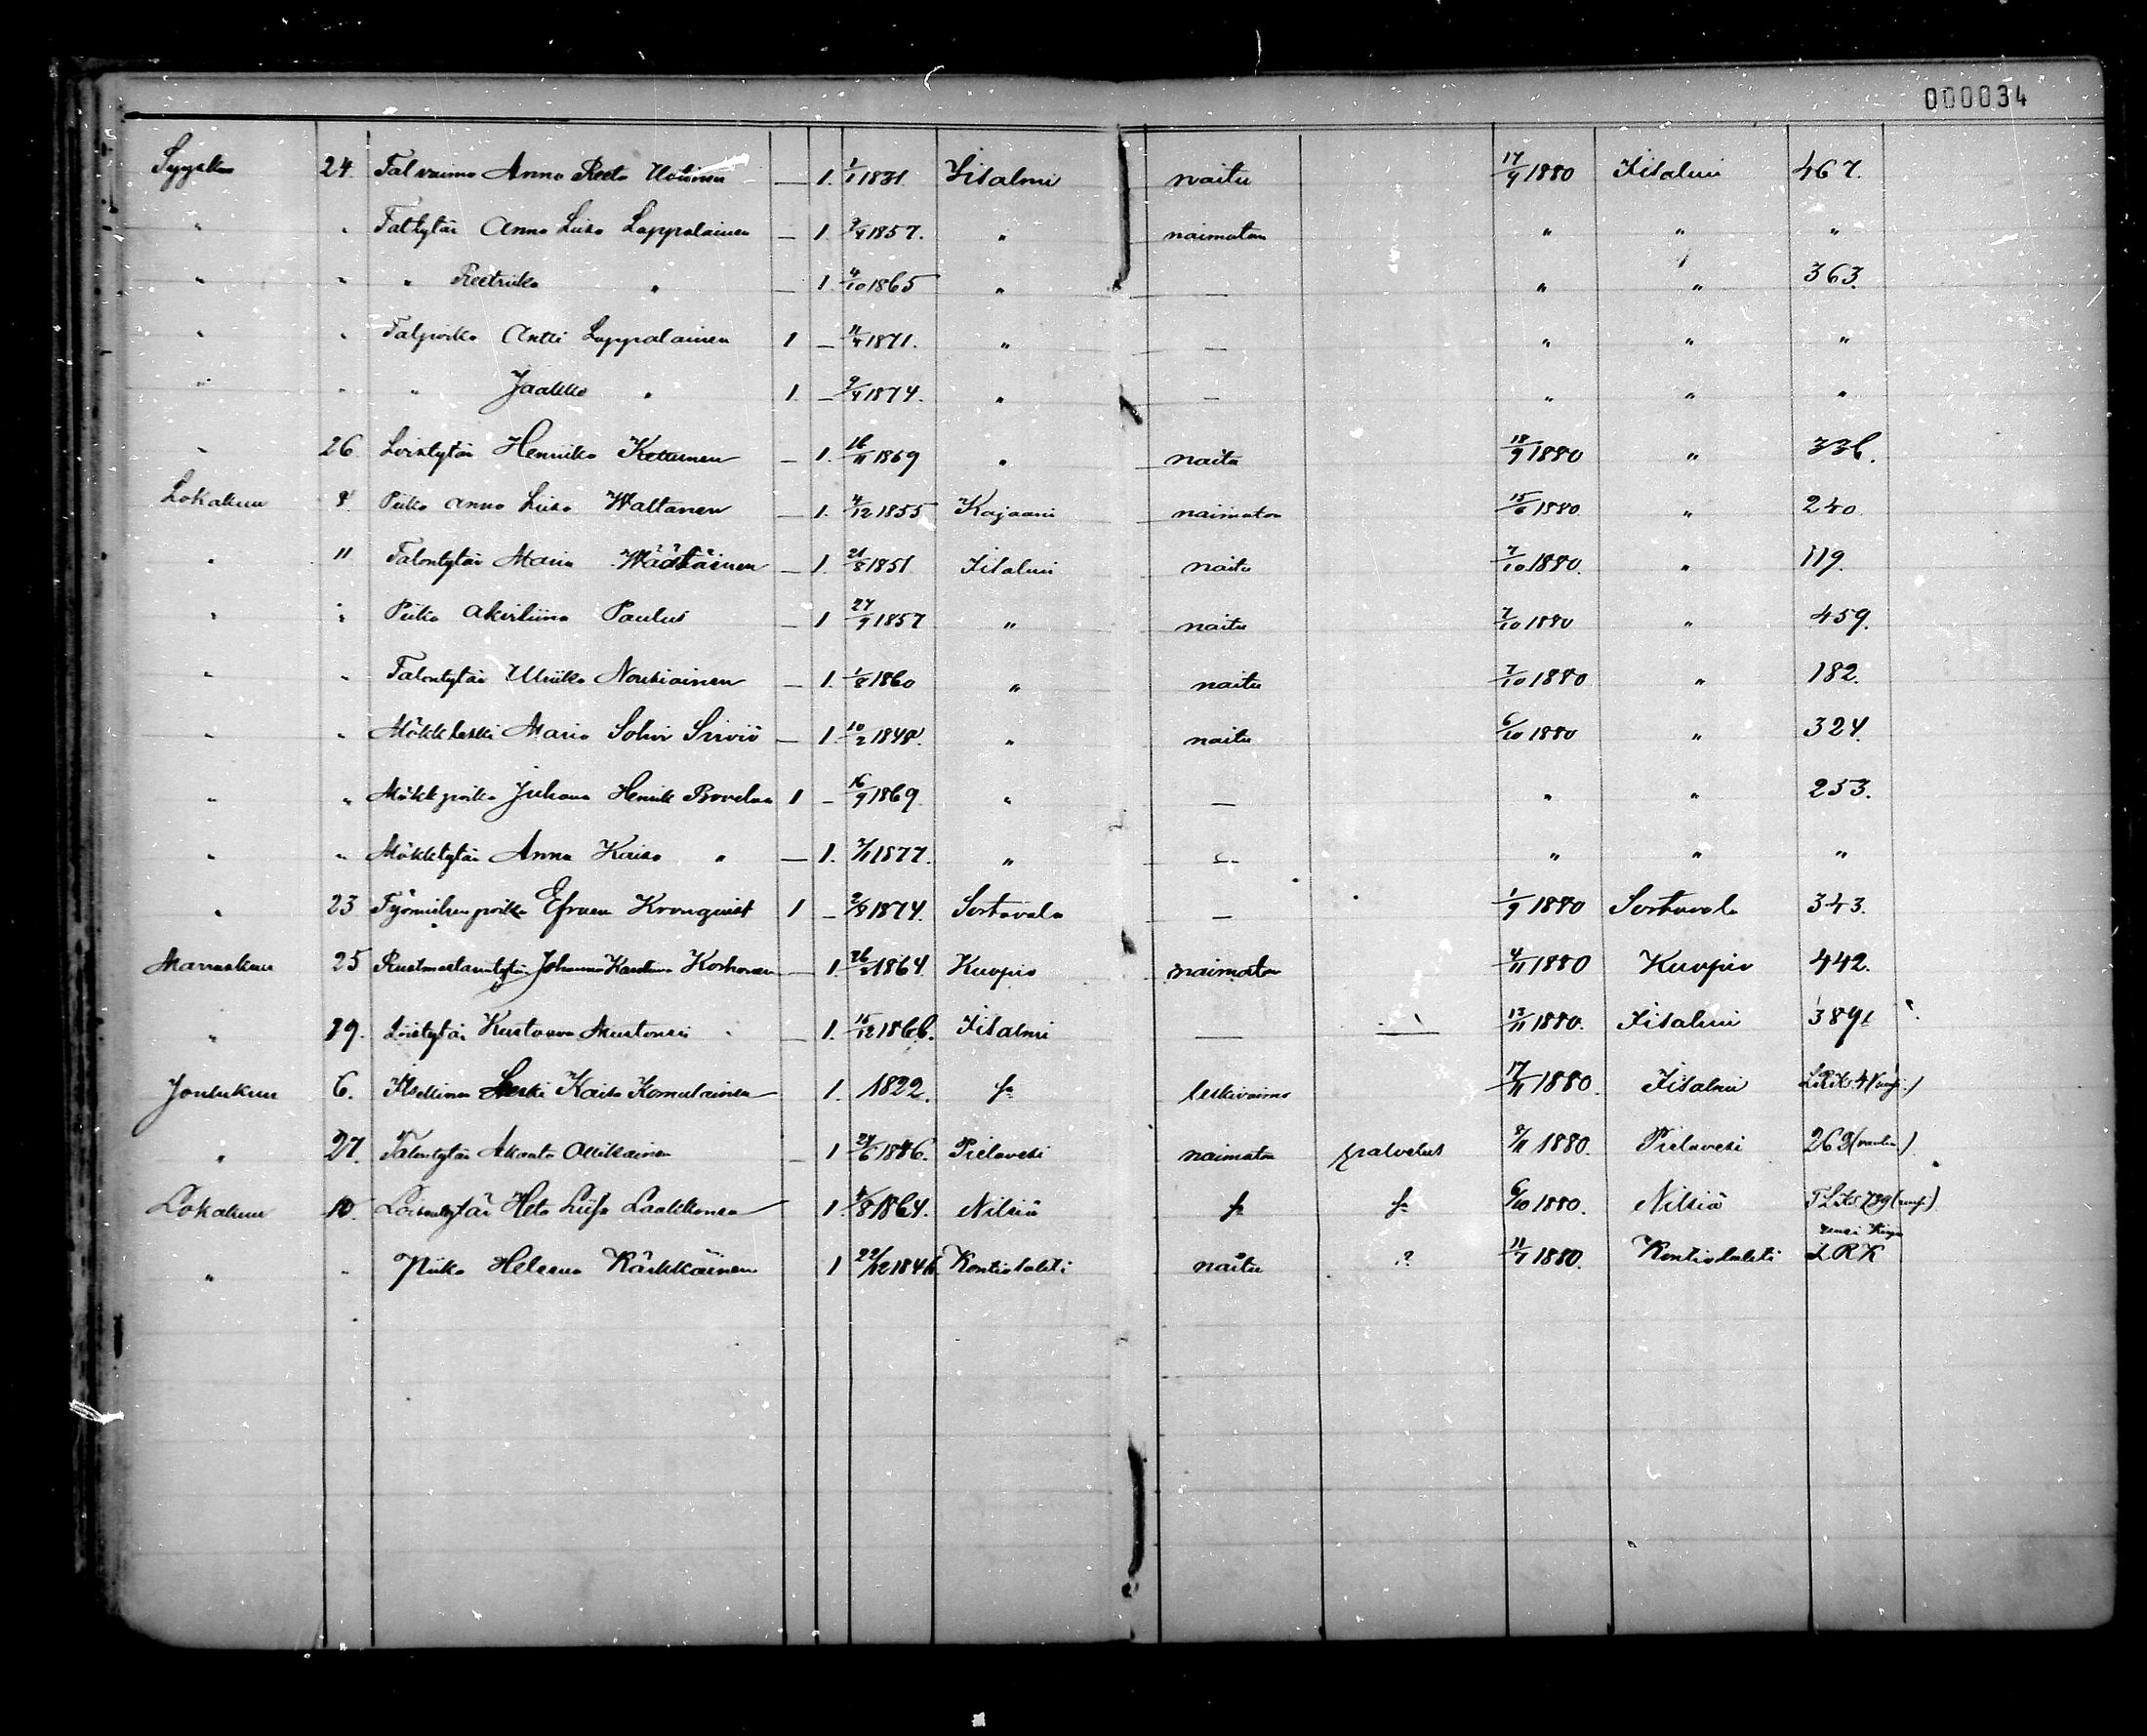 000034
Syysku 24. Tal vaimo Anna Reeta — 1. 1/1 1831 Iisalmi naitu 17/9 1880 Iisalmi 467.
" " Tal tytär Anna Liisa Lappalainen — 1. 3/4 1857. " naimaton " " "
" " " Reetriika " — 1. 4/10 1865 " — " " 363.
" " Talpoika Antti Lappalainen 1 — 11/4 1871. " — " " "
" " " Jaakko " 1. — 9/4 1874. " — " " "
" 26 Loistytär Henriika Kettunen — 1. 16/11 1859 " naitu 18/9 1880 " 336.
Lokakuu 4 Piika Anna Liisa Waltanen — 1. 4/12 1855 Kajaani naimaton 15/6 1880 " 240
" 11 Talontytär Maria Wäätäinen — 1. 21/8 1851 Iisalmi naitu 7/10 1880. " 119.
" " Piika Akviliina Paulus — 1 27/9 1857 " naitu 7/10 1880 " 459.
" " Talontytär Ulriika Nousiainen — 1. 1/8 1860 " naitu 7/10 1880 " 182.
" " Mökkleski Maria Sohvi Sirviö — 1. 10/2 1848. " naitu 6/10 1880 " 324.
" " Mökkpoika Juhana Henrik 1 — 16/9 1869. " — " " 253.
" " Mökktytär Anna Kaisa " — 1. 7/11 1877. " — " " "
" 23 Työmiehenpoika Efraim Kronqvist 1 — 2/8 1874. Sortavala — 1/9 1880 Sortavala 343.
Marraskuu 25 Johanna Karoliina Korhonen — 1. 26/2 1864. Kuopio naimaton 4/11 1880 Kuopio 442.
" 29. Loistytär Kustaava Mustonen — 1. 15/12 1866. Iisalmi — — 13/11 1880. Iisalmi 389
Joulukuu 6. Itsellinen Leski Kaisa Komulainen 1. 1822. leskivaimo 17/11 1880. Iisalmi
" 27. Talontytär Akaata Ollikainen — 1 24/6 1846. Pielavesi naimaton palvelus 8/11 1880. Pielavesi 263
Lokakuu 10. Loisentytär Heta Liisa Laakkonen 1. 4/8 1864. Nilsiä 6/10 1880. Nilsiä
" " Piika Heleena Kärkkäinen 1 22/12 1846. Kontiolahti naitu ? 11/7 1880. Kontiolahti L R K